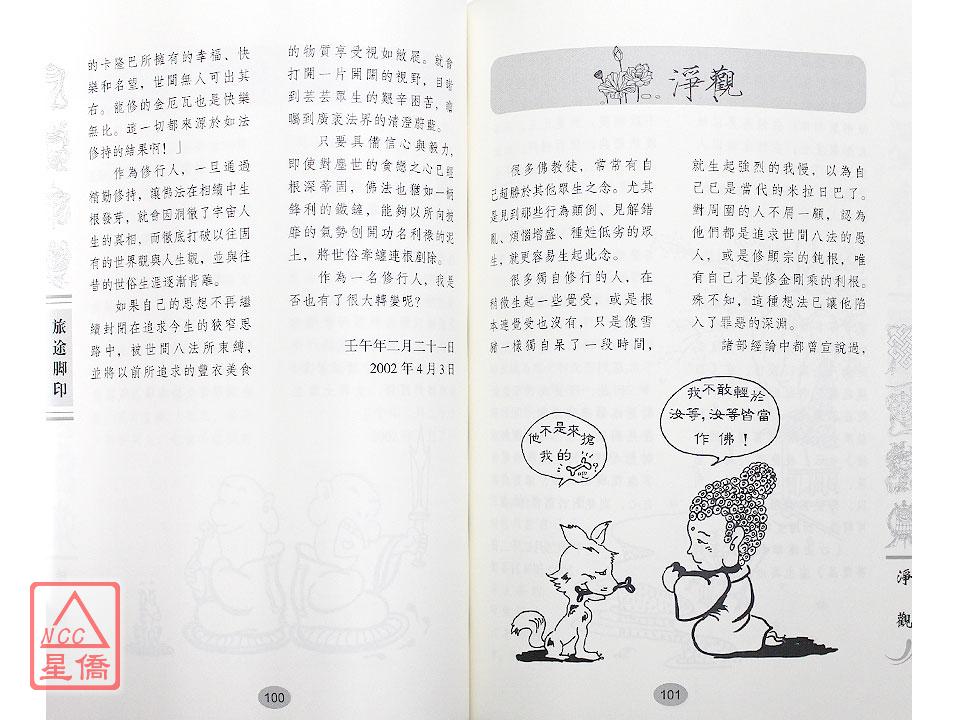 的卡隆巴所擁有的幸福、快
樂和名望，世間無人可出其
右。龍修的金厄瓦也是快樂
無比。這一切都來源於如法
修持的結果啊！」
作為修行人，一旦通過
精勤修持，讓佛法在相續中生
根發芽，就會因洞徹了宇宙人
生的真相，而徹底打破以往固
有的世界觀與人生觀，並與往
昔的世俗生涯逐漸背離。
如果自己的思想不再繼
續封閉在追求今生的狹窄思
路中，被世間八法所束縛，
並將以前所追求的豐衣美食
的物質享受視如敝屣。就會
打開一片開闊的視野，目睹
到芸芸眾生的艱辛困苦，瞻
矚到廣袤法界的清澄蔚藍。
只要具備信心與毅力，
即使對塵世的貪戀之心已經
根深蒂固，佛法也猶如一柄
鋒利的鐵鏟，能夠以所向披
靡的氣勢刨開功名利祿的泥
土，將世俗牽纏連根剷除。
作為一名修行人，我是
否也有了很大轉變呢？
壬午年二月二十一日
2002年4月3日
旅途脚印
100
淨觀
很多佛教徒，常常有自
己超勝於其他眾生之念。尤其
是見到那些行為顛倒、見解錯
亂、煩惱增盛、種姓低劣的眾
生，就更容易生起此念。
很多獨自修行的人，在
稍微生起一些覺受，或是根
本連覺受也沒有，只是像雪
豬一樣獨自呆了一段時間，
就生起強烈的我慢，以為自
己已是當代的米拉日巴了。
對周圍的人不屑一顧，認為
他們都是追求世間八法的愚
人，或是修顯宗的鈍根，唯
有自己才是修金剛乘的利根。
殊不知，這種想法已讓他陷
入了罪惡的深淵。
諸部經論中都曾宣說過，
他不是來搶
我的吧？
我不敢輕於
汝等，汝等皆當
作佛！
淨觀
101
NCC
星僑